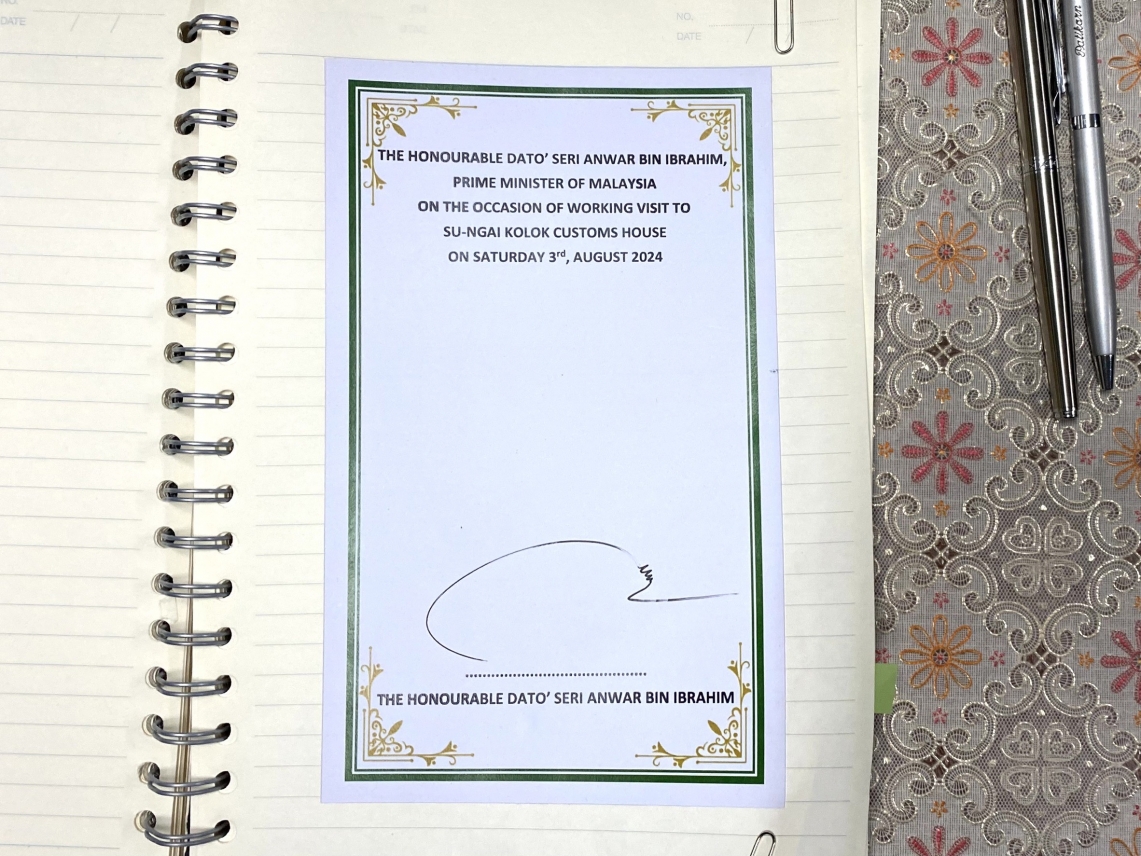 NO.
DATE / /
NO.
DATE /
THE HONOURABLE DATO’ SERI ANWAR BIN IBRAHIM,
PRIME MINISTER OF MALAYSIA
ON THE OCCASION OF WORKING VISIT TO
SU-NGAI KOLOK CUSTOMS HOUSE
ON SATURDAY 3rd, AUGUST 2024
THE HONOURABLE DATO’ SERI ANWAR BIN IBRAHIM